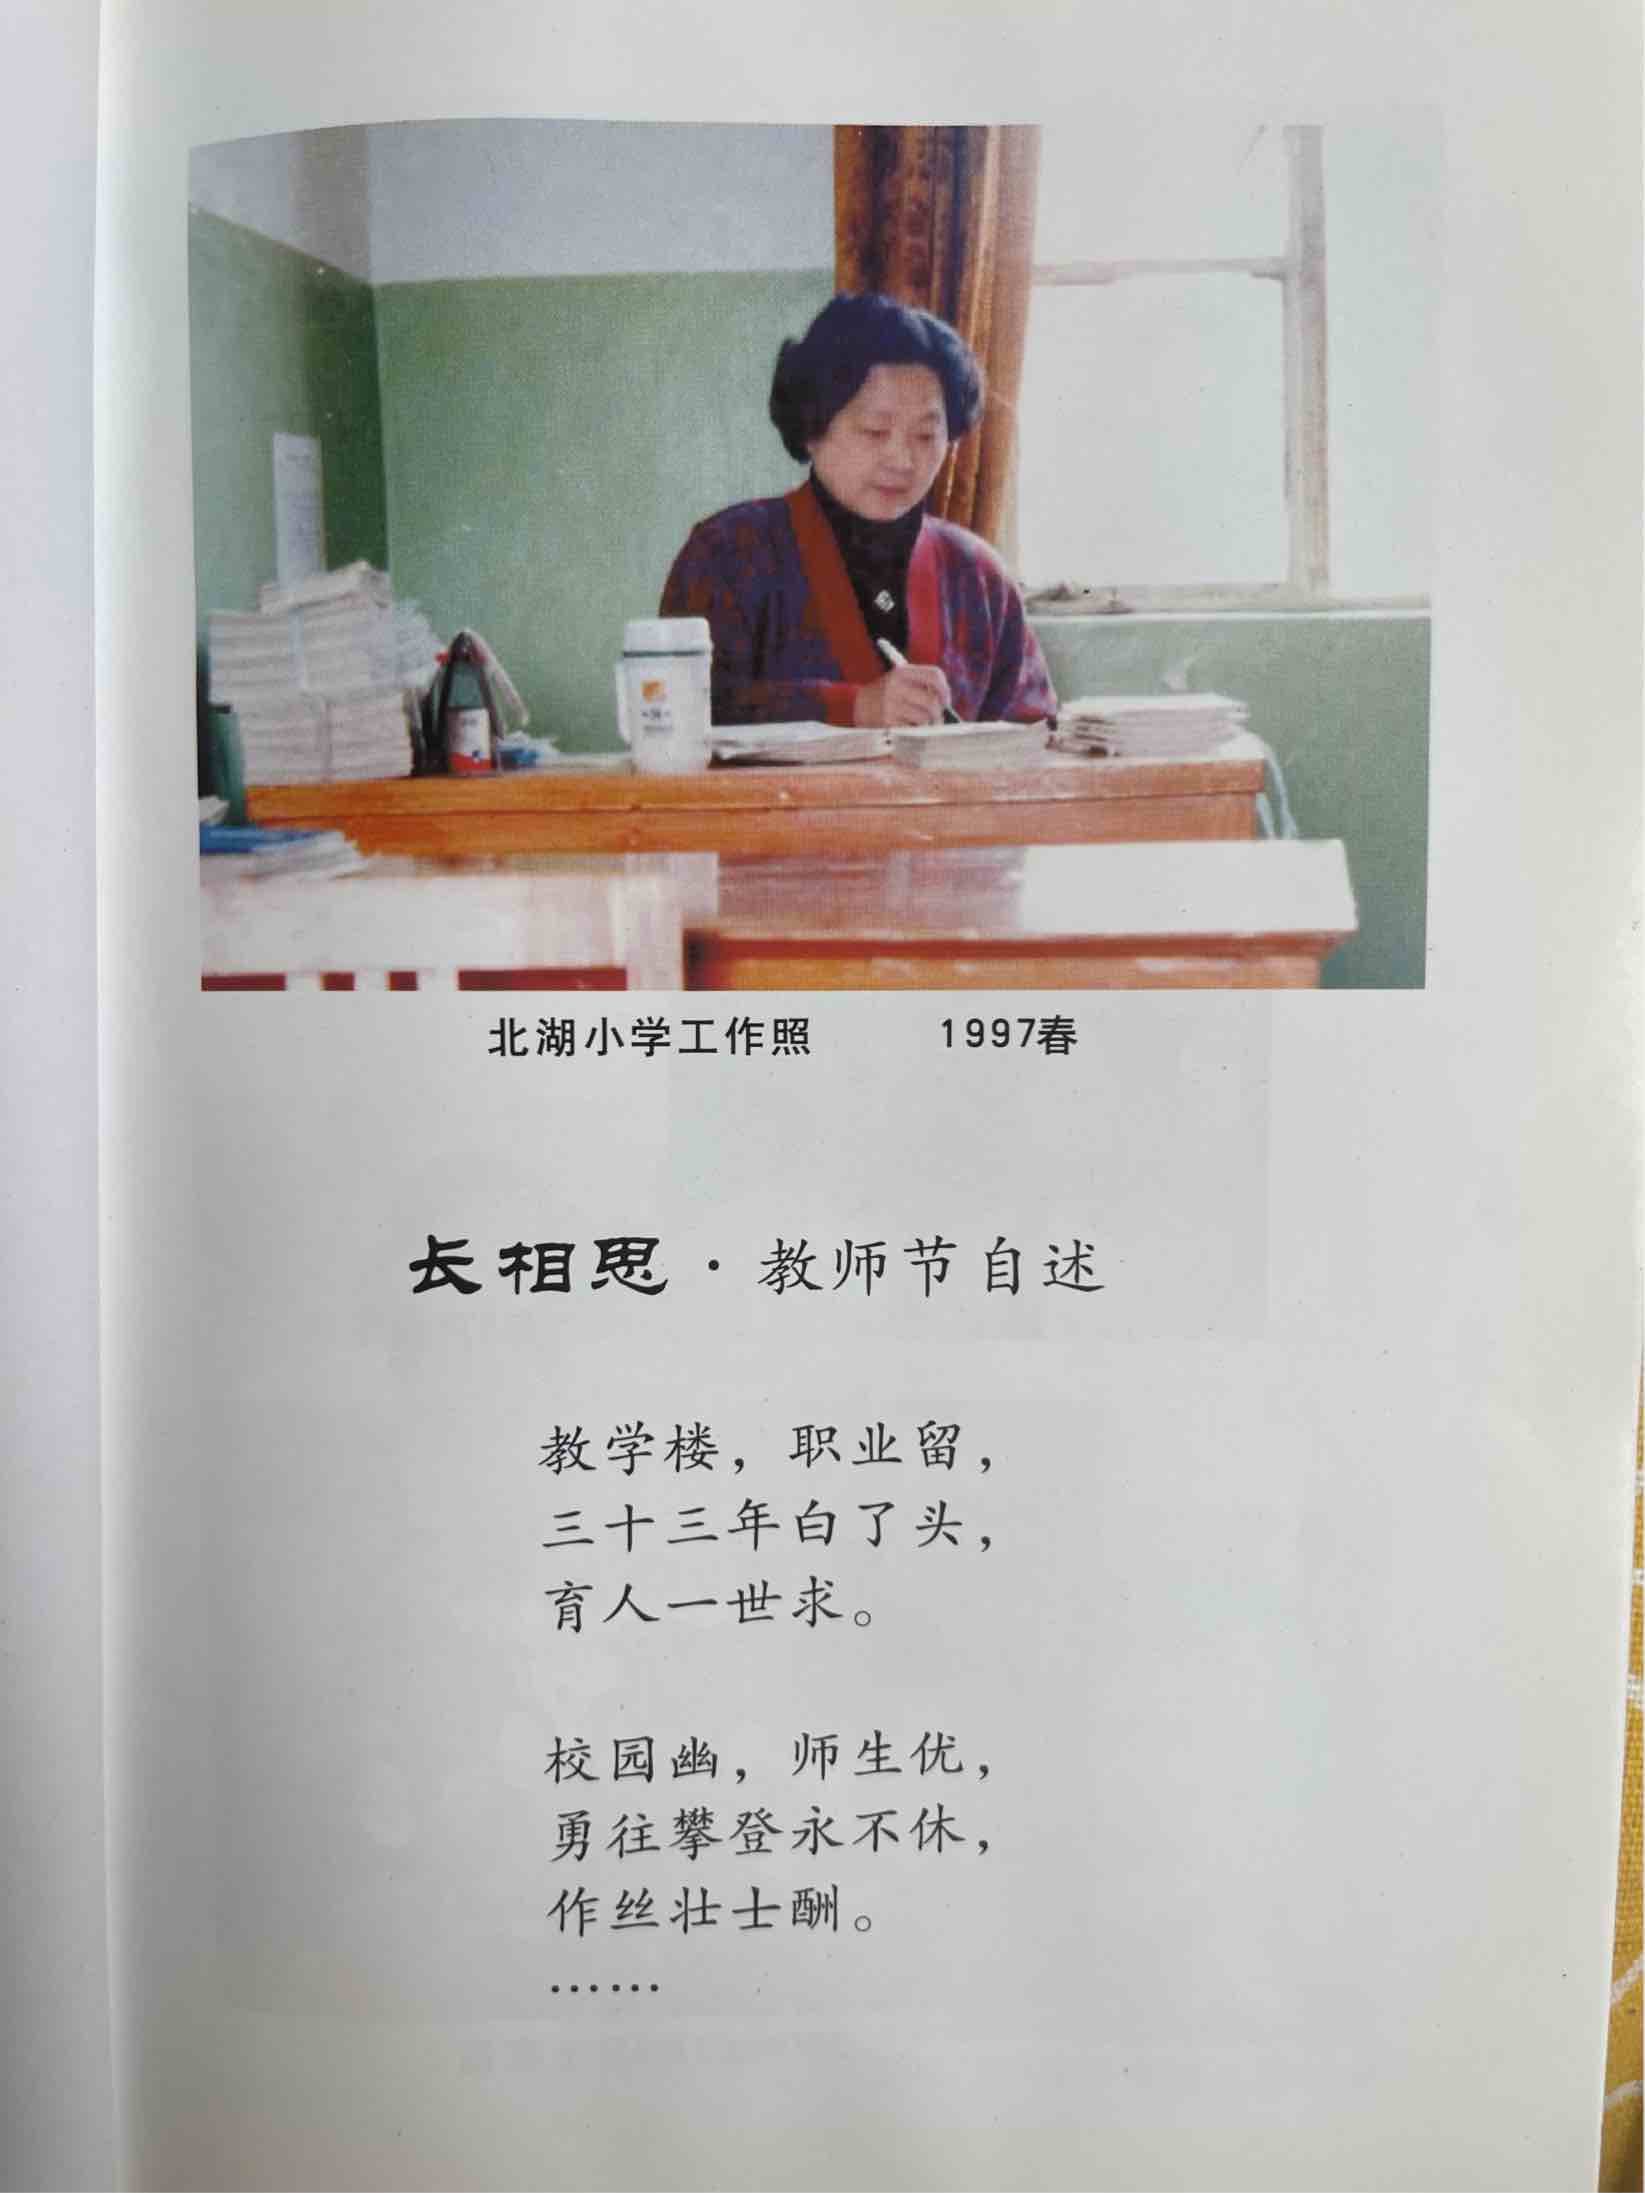 北湖小学工作照 1997春
长相思·教师节自述
教学楼，职业留，
三十三年白了头，
育人一世求。
校园幽，师生优，
勇往攀登永不休，
作丝壮士酬。
……